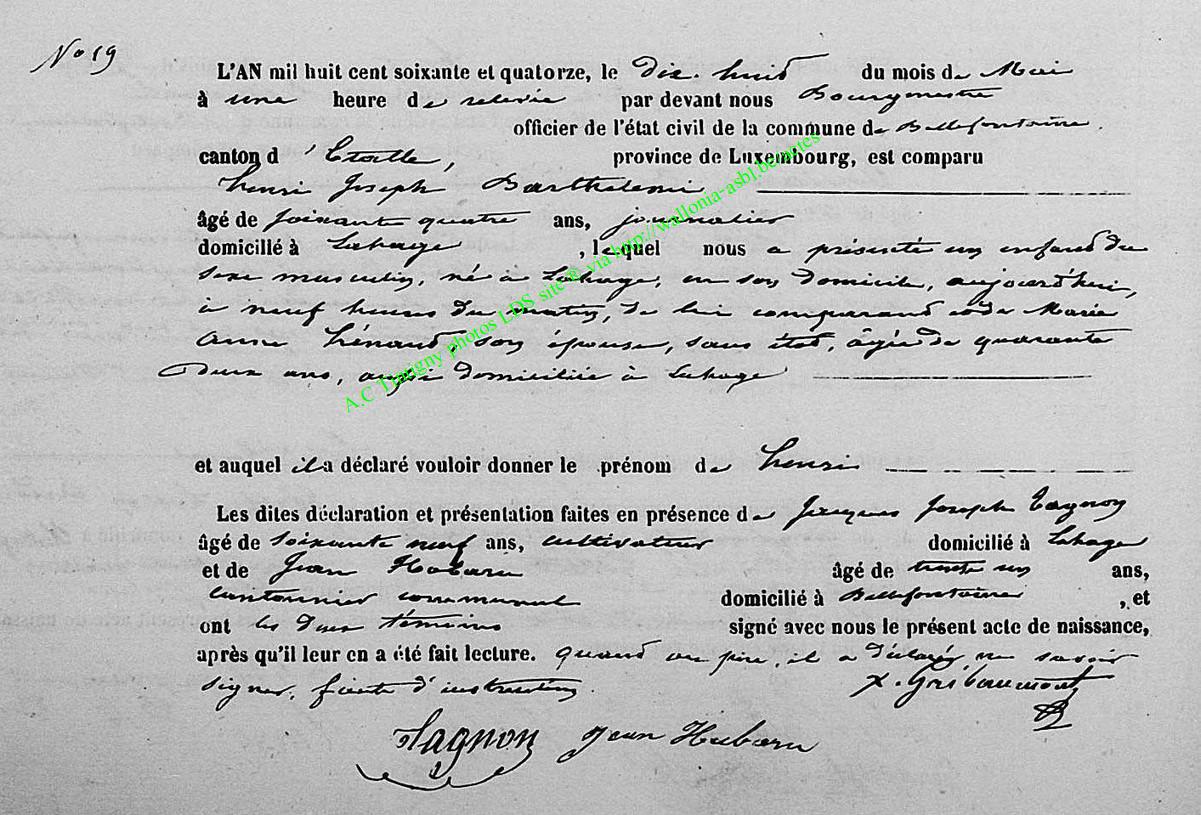 No 19
L'AN mil huit cent soixante et quatorze, le dix-huit du mois de Mai
à une heure de relevée par devant nous Bourgmestre
officier de l'état civil de la commune de Bellefontaine,
canton d'Etalle, province de Luxembourg, est comparu
henri Joseph Barthelemi
âgé de soixante quatre ans, journalier
domicilié à Lahage, lequel nous a présenté un enfant du
sexe masculin, né à Lahage, en son domicile, aujourd'hui,
à neuf heures du matin, de lui comparant et de Marie
Anne hénaud, son épouse, sans état, âgée de quarante
deux ans, aussi domiciliée à Lahage
et auquel il a déclaré vouloir donner le prénom de henri
Les dites déclaration et présentation faites en présence de Jacques Joseph Tagnon
âgé de soixante neuf ans, cultivateur domicilié à Lahage
et de Jean Habaru âgé de trente un ans,
cantonnier communal domicilié à Bellefontaine, et
ont les deux témoins signé avec nous le présent acte de naissance,
après qu'il leur en a été fait lecture. quand au père, il a déclaré ne savoir
signer, faute d'instruction.
x. Gribaumont
Tagnon Jean Habaru
A.C Tintigny photos LDS site © via http://wallonia-asbl.be/actes